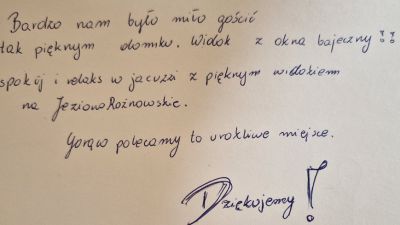 Bardzo nam było miło gościć
tak pięknym domku. Widok z okna bajeczny!!
spokój i relaks w jacuzzi z pięknym widokiem
na Jezioro Rożnowskie.
Gorąco polecamy to urokliwe miejsce.
Dziękujemy!